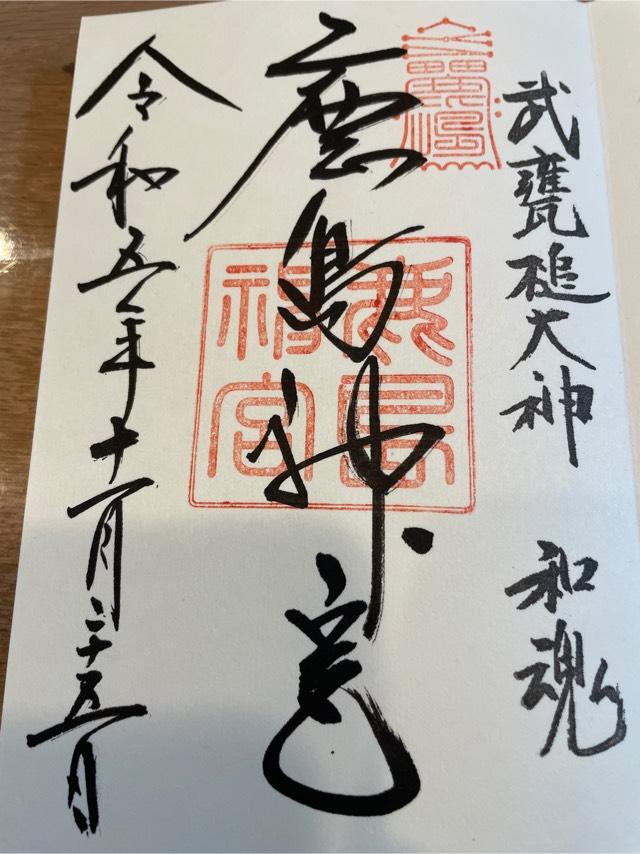 武甕槌大神　和魂
鹿島神宮
鹿島
神宮
令和五年十一月二十五日